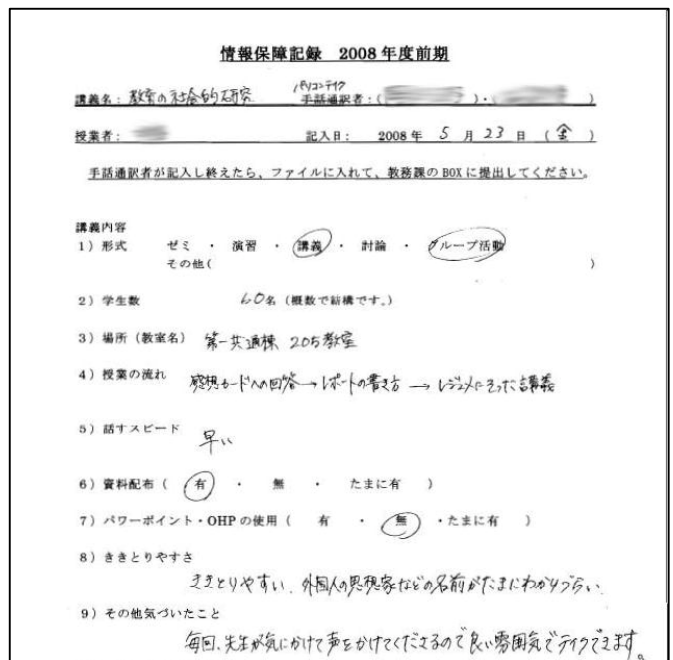 情報保障記録　2008年度前期
パソコンテイク
講義名：教室の社会的研究　手話通訳者：(　　　)・(　　　)
授業者：　　　記入日：　2008年 5 月 23 日 (金)
手話通訳者が記入し終えたら、ファイルに入れて、教務課のBOXに提出してください。
講義内容
1）形式　ゼミ ・ 演習 ・ 講義 ・ 討論 ・ グループ活動
その他(　　　)
2）学生数　60名（概数で結構です。）
3）場所（教室名）　第一共通棟 205教室
4）授業の流れ　感想カードへの回答→レポートの書き方 → レジュメにそった講義
5）話すスピード
早い
6）資料配布（　有　・　無　・　たまに有　）
7）パワーポイント・OHPの使用（　有　・　無　・たまに有　）
8）ききとりやすさ
ききとりやすい．外国人の思想家などの名前がたまにわかりづらい．
9）その他気づいたこと
毎回、先生が気にかけて声をかけてくださるので良い雰囲気でテイクできます。